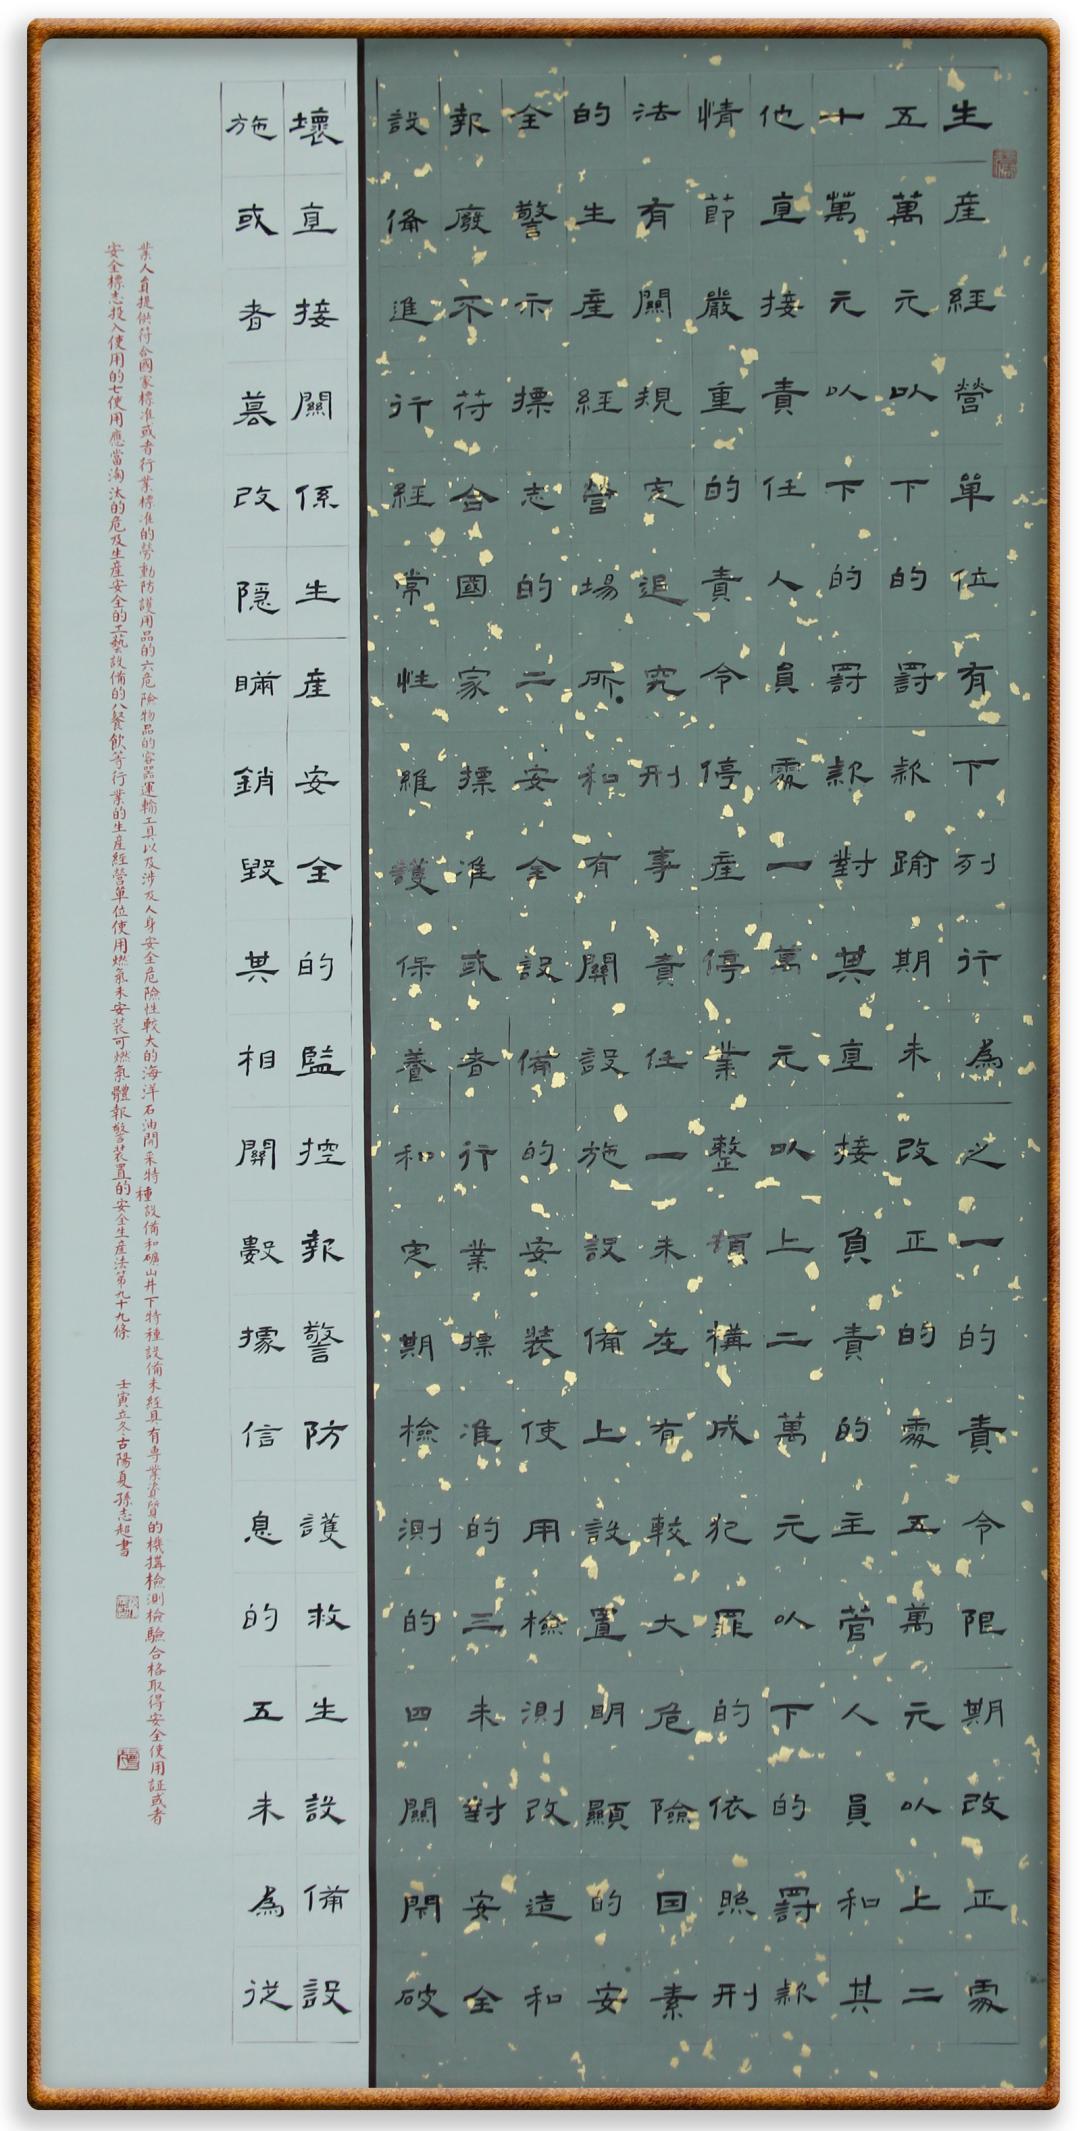 生産經營單位有下列行為之一的責令限期改正處
五萬元以下的罰款逾期未改正的處五萬元以上二
十萬元以下的罰款對其直接負責的主管人員和其
他直接責任人員處一萬元以上二萬元以下的罰款
情節嚴重的責令停産停業整頓構成犯罪的依照刑
法有關規定追究刑事責任一未在有較大危險因素
的生産經營場所和有關設施設備上設置明顯的安
全警示標志的二安全設備的安裝使用檢測改造和
報廢不符合國家標准或者行業標准的三未對安全
設備進行經常性維護保養和定期檢測的四關閉破
壞直接關係生産安全的監控報警防護救生設備設
施或者篡改隐瞞銷毀其相關數據信息的五未為從
業人員提供符合國家標准或者行業標准的勞動防護用品的六危險物品的容器運輸工具以及涉及人身安全危險性較大的海洋石油開采特種設備和礦山井下特種設備未經具有專業資質的機構檢測檢驗合格取得安全使用証或者
安全標志投入使用的七使用應當淘汰的危及生産安全的工藝設備的八餐飲等行業的生産經營單位使用燃氣未安裝可燃氣體報警裝置的安全生産法第九十九條 壬寅立冬古陽夏孫志超書